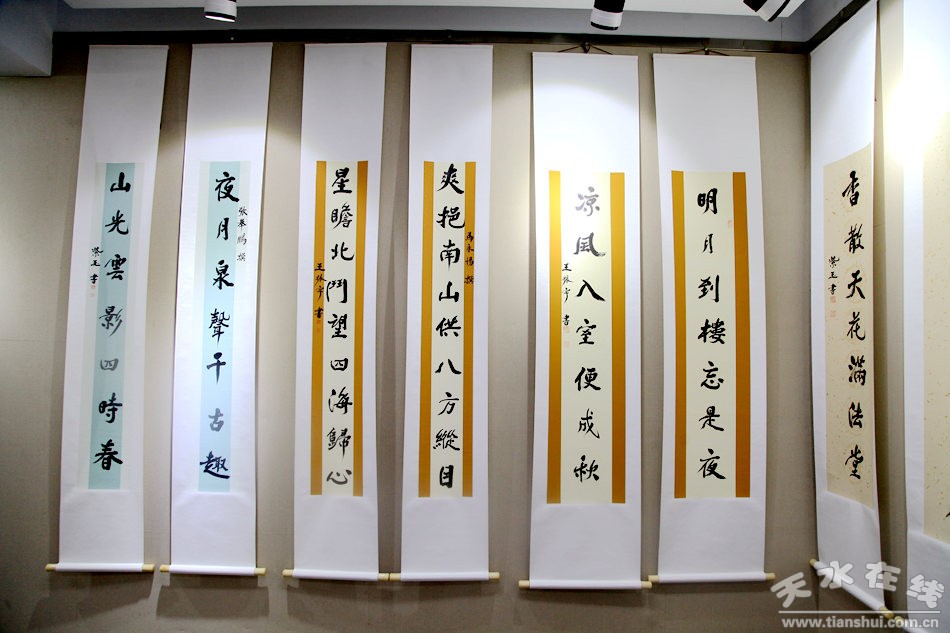 香散天花滿法堂
明月到樓忘是夜
凉風入室便成秋
王振宇書
爽挹南山供八方縱目
星瞻北鬥望四海歸心
王振宇書
夜月泉聲千古趣
張舉鵬 撰
山光雲影四時春
天水在线
www.tianshui.com.cn